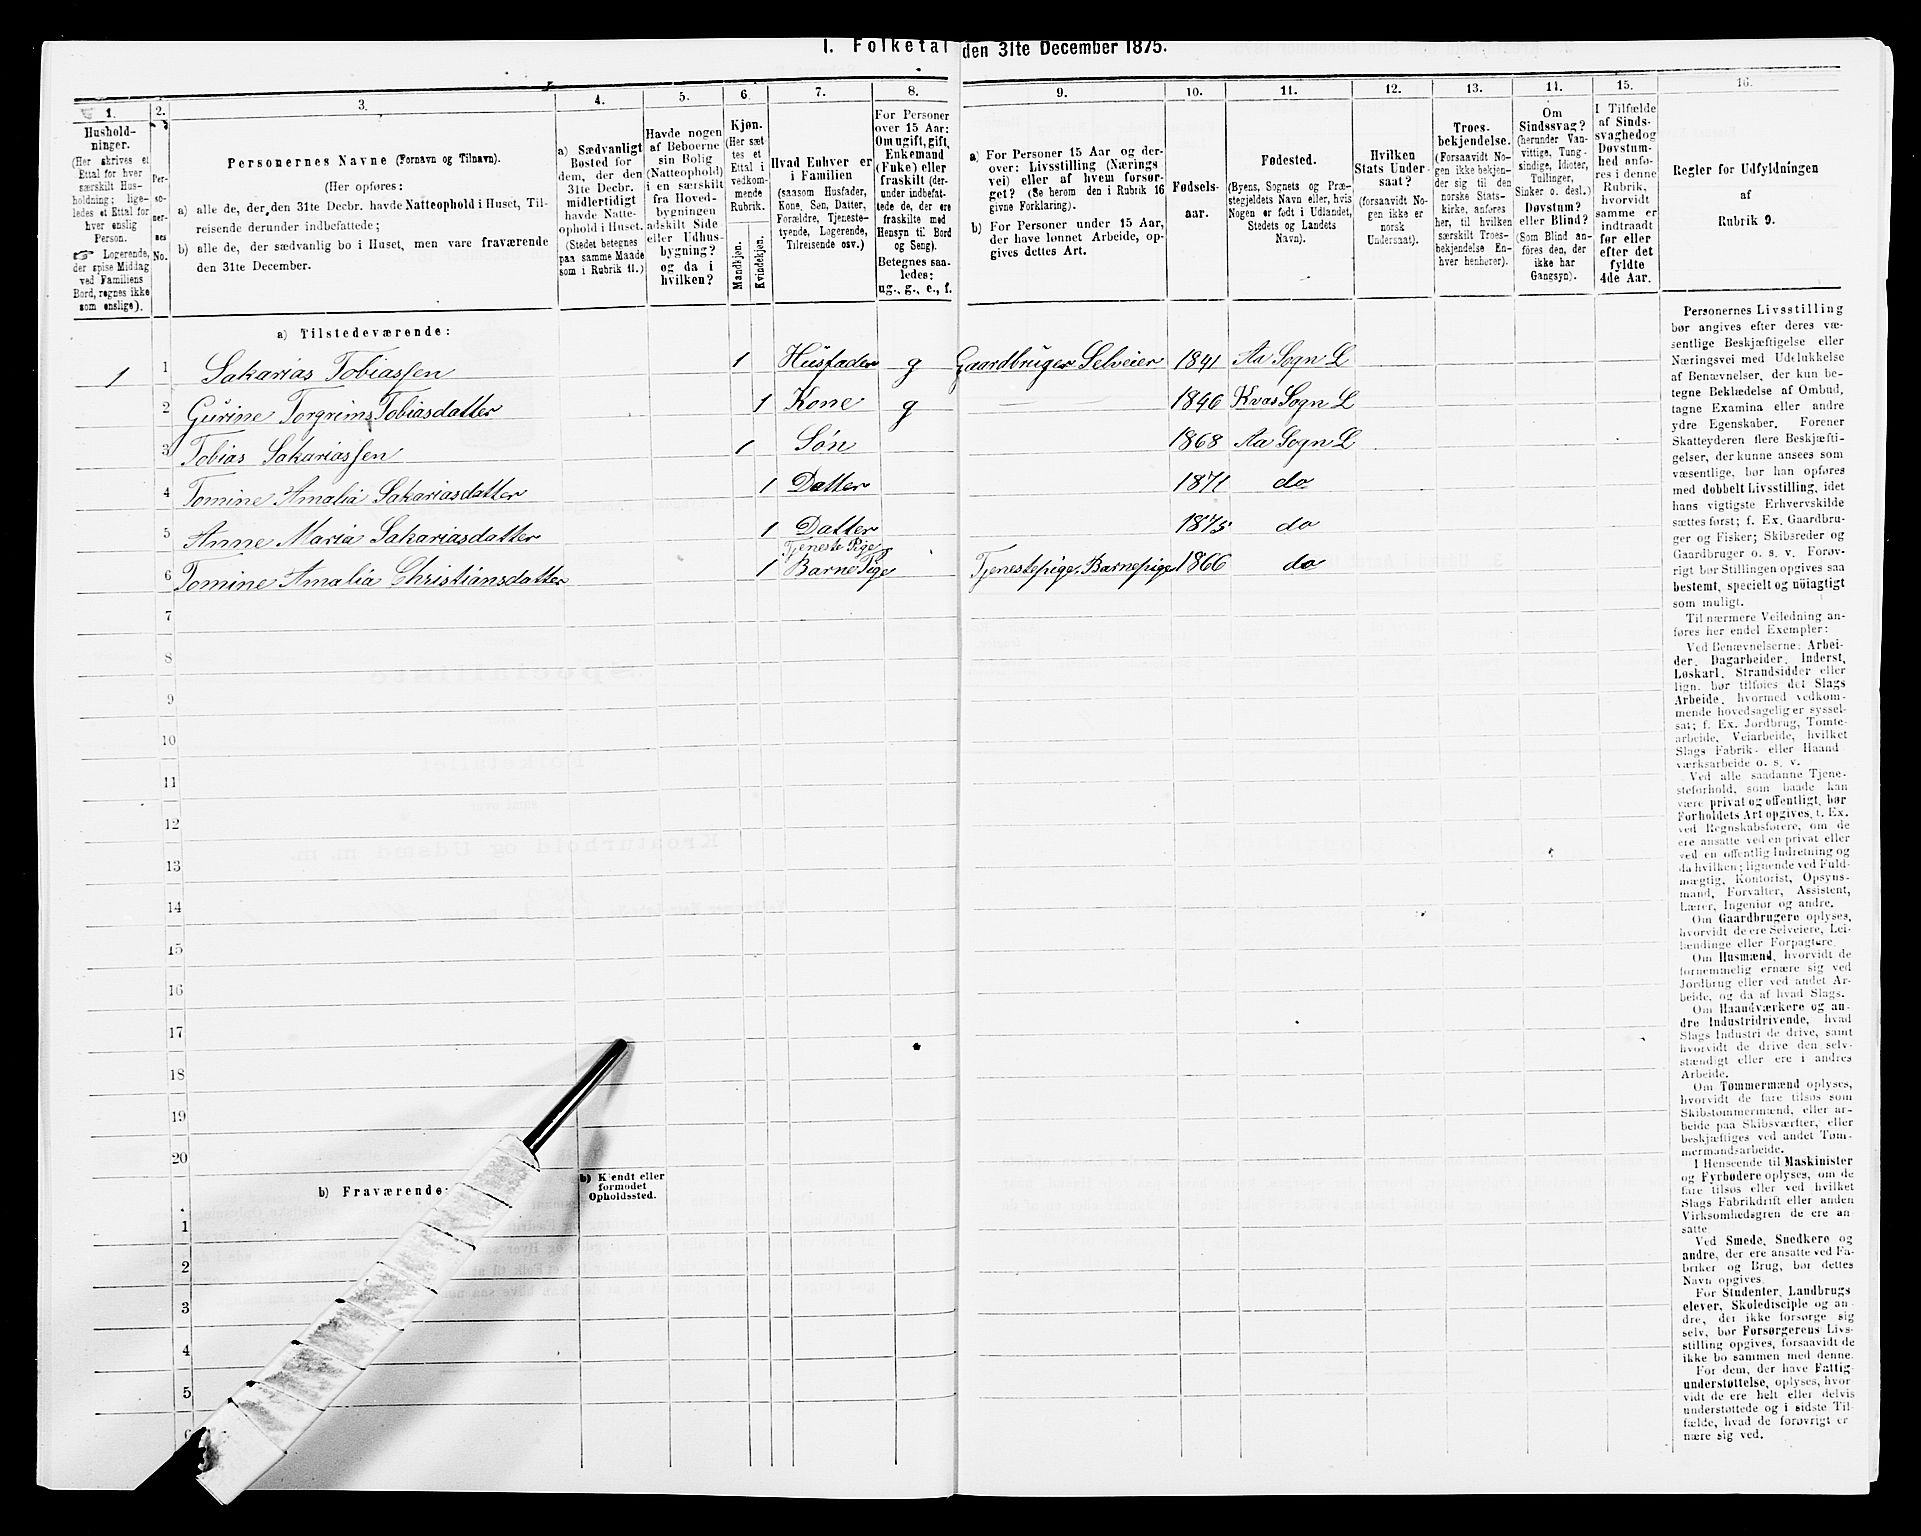 I. Folketal den 31te December 1875.
1.
2.
3.
4.
5.
6.
7.
8.
9.
10.
11.
12.
13.
14.
15.
16.
Hushold-
ninger.
(Her skrives et
Ettal for hver
særskilt Hus-
holdning; lige-
ledes et Ettal for
hver enslig
Person.
☞ Logerende,
der spise Middag
ved Familiens
Bord, regnes ikke
som enslige).
Per-
so-
ner-
nes
No.
Personernes Navne (Fornavn og Tilnavn).
(Her opføres:
a) alle de, der den 31te Decbr. havde Natteophold i Huset, Til-
reisende derunder indbefattede;
b) alle de, der sædvanlig bo i Huset, men vare fraværende
den 31te December.
a) Sædvanligt
Bosted for
dem, der den
31te Decbr.
midlertidigt
havde Natte-
ophold i Huset.
(Stedet betegnes
paa samme Maade
som i Rubrik 11.)
Havde nogen
af Beboerne
sin Bolig
(Natteophold)
i en særskilt
fra Hoved-
bygningen
adskilt Side
eller Udhus-
bygning?
og da i
hvilken?
Kjøn.
(Her sæt-
tes et
Ettal i
vedkom-
mende
Rubrik.
Mandkjøn.
Kvindekjøn.
Hvad Enhver er
i Familien
(saasom Husfader,
Kone, Søn, Datter,
Forældre, Tjeneste-
tyende, Logerende,
Tilreisende osv.)
For Personer
over 15 Aar:
Om ugift, gift,
Enkemand
(Enke) eller
fraskilt (der-
under indbefat-
tede de, der ere
fraskilte med
Hensyn til Bord
og Seng).
Betegnes saa-
ledes:
ug., g., e., f.
a) For Personer 15 Aar og der-
over: Livsstilling (Nærings
vei) eller af hvem forsør-
get? (Se herom den i Rubrik 16
givne Forklaring).
b) For Personer under 15 Aar,
der have lønnet Arbeide, op-
gives dettes Art.
Fødsels-
aar.
Fødested.
(Byens, Sognets og Præ-
stegjeldets Navn eller, hvis
Nogen er født i Udlandet,
Stedets og Landets
Navn).
Hvilken
Stats Under-
saat?
(forsaavidt No-
gen ikke er
norsk
Undersaat).
Troes-
bekjendelse.
(Forsaavidt No-
gen ikke bekjen-
der sig til den
norske Stats-
kirke, anføres
her, til hvilken
særskilt Troes-
bekjendelse En-
hver henhører).
Om
Sindssvag?
(herunder Van-
vittige, Tung-
sindige, Idioter,
Tullinger,
Sinker o. desl.)
Døvstum?
eller Blind?
(Som Blind an-
føres den, der
ikke har
Gangsyn).
I Tilfælde
af Sinds-
svaghed og
Døvstum-
hed anfø-
res i denne
Rubrik,
hvorvidt
samme er
indtraadt
før eller
efter det
fyldte
4de Aar.
Regler for Udfyldningen
af
Rubrik 9.
a) Tilstedeværende:
1 1 Sakarias Tobiassen 1 Husfader g Gaardbruger Selveier 1841 Aa Sogn L
2 Gurine Torgrims Tobiasdatter 1 Kone g 1846 Kvas Sogn L
3 Tobias Sakariassen 1 Søn 1868 Aa Sogn L
4 Tomine Amalia Sakariasdatter 1 Datter 1871 do
5 Anne Maria Sakariasdatter 1 Datter 1875 do
Tjeneste Pige
6 Tomine Amalia Christiansdatter 1 Barne Pige Tjenestepige, Barnepige 1866 do
7
8
9
10
11
12
13
14
15
16
17
18
19
20
b) Fraværende:
b) Kjendt eller
formodet
Opholdssted.
1
2
3
4
5
6
Personernes Livsstilling
bør angives efter deres væ-
sentlige Beskjæftigelse eller
Næringsvei med Udelukkelse
af Benævnelser, der kun be-
tegne Beklædelse af Ombud,
tagne Examina eller andre
ydre Egenskaber. Forener
Skatteyderen flere Beskjæfti-
gelser, der kunne ansees som
væsentlige, bør han opføres
med dobbelt Livsstilling, idet
hans vigtigste Erhvervskilde
sættes først; f. Ex. Gaardbru-
ger og Fisker; Skibsreder og
Gaardbruger o. s. v. Forøv-
rigt bør Stillingen opgives saa
bestemt, specielt og nøiagtigt
som muligt.
Til nærmere Veiledning an-
føres her endel Exempler:
Ved Benævnelserne: Arbei-
der, Dagarbeider, Inderst,
Løskarl, Strandsidder eller
lign. bør tilføies det Slags
Arbeide, hvormed vedkom-
mende hovedsagelig er syssel-
sat; f. Ex. Jordbrug, Tomte-
arbeide, Veiarbeide, hvilket
Slags Fabrik- eller Haand-
værksarbeide o. s. v.
Ved alle saadanne Tjene-
steforhold, som baade kan
være privat og offentligt, bør
Forholdets Art opgives, f. Ex.
ved Regnskabsførere, om de
ere ansatte ved en privat eller
ved en offentlig Indretning og
da hvilken; lignende ved Fuld-
mægtig, Kontorist, Opsyns-
mand, Forvalter, Assistent,
Lærer, Ingeniør og andre.
Om Gaardbrugere oplyses,
hvorvidt de ere Selveiere, Lei-
lændinge eller Forpagtere.
Om Husmænd, hvorvidt de
fornemmelig ernære sig ved
Jordbrug eller ved andet Ar-
beide, og da af hvad Slags.
Om Haandværkere og an-
dre Industridrivende, hvad
Slags Industri de drive, samt
hvorvidt de drive den selv-
stændigt eller ere i andres
Arbeide.
Om Tømmermænd oplyses,
hvorvidt de fare tilsøs som
Skibstømmermænd, eller ar-
beide paa Skibsværfter, eller
beskjæftiges ved andet Tøm-
mermandsarbeide.
I Henseende til Maskinister
og Fyrbødere oplyses, om de
fare tilsøs eller ved hvilket
Slags Fabrikdrift eller anden
Virksomhedsgren de ere an-
satte.
Ved Smede, Snedkere og
andre, der ere ansatte ved Fa-
briker og Brug, bør dettes
Navn opgives.
For Studenter, Landbrugs
elever, Skoledisciple og an-
dre, der ikke forsørge sig
selv, bør Forsørgerens Livs-
stilling opgives, forsaavidt de
ikke bo sammen med denne.
For dem, der have Fattig-
understøttelse, oplyses, hvor-
vidt de ere helt eller delvis
understøttede og i sidste Til-
fælde, hvad de forøvrigt er
nære sig ved.